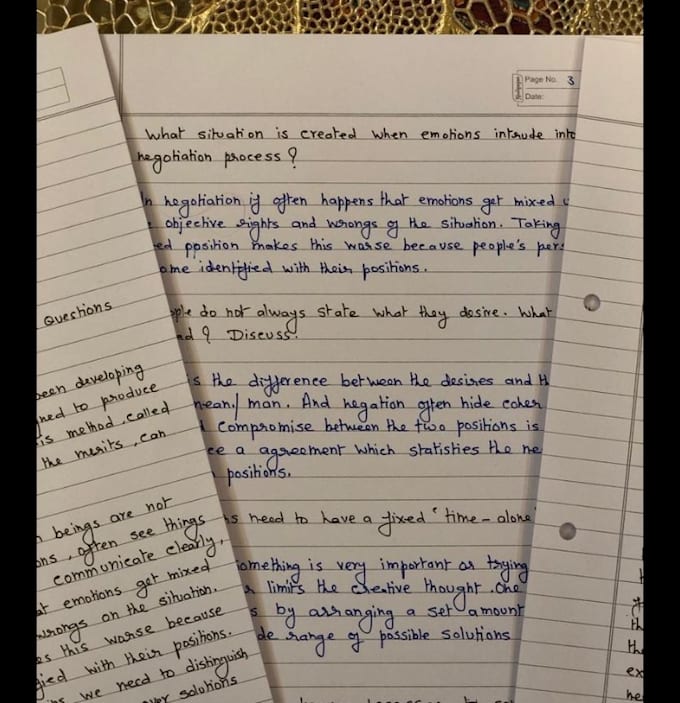 Page No. 3
Date:
What situation is created when emotions intrude into
negotiation process ?
In negotiation if often happens that emotions get mixed
objective rights and wrongs of the situation. Taking
ed pposition makes this worse because people's per
ome identified with their positions.
ople do not always state what they desire. What
nd ? Discuss.
is the difference between the desires and
mean/ man. And negation often hide
compromise between the two positions is
ce a agreement which statisties the ne
positions.
ns need to have a fixed 'time - alone'
omething is very important as trying
limits the creative thought. One
s by arranging a set amount
de range of possible solutions
Questions
been developing
ned to produce
is method, called
the merits, can
n beings are not
ons, often see things
communicate clearly,
at emotions get mixed
wrongs on the situation.
es this worse because
fied with their positions.
we need to distinguish
over solutions
th
the
ex
he